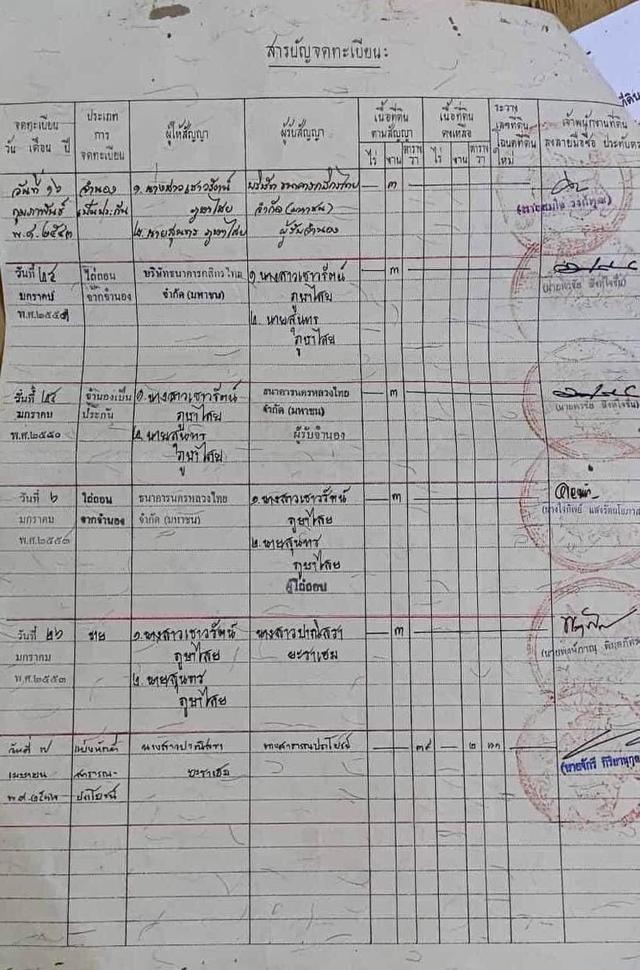 สารบัญจดทะเบียน
จดทะเบียน
วัน เดือน ปี
ประเภท
การ
จดทะเบียน
ผู้ให้สัญญา
ผู้รับสัญญา
เนื้อที่ดิน
ตามสัญญา
ไร่ งาน ตารางวา
เนื้อที่ดิน
คงเหลือ
ไร่ งาน ตารางวา
ระวาง
เลขที่ดิน
โฉนดที่ดิน
ใหม่
เจ้าพนักงานที่ดิน
ลงลายมือชื่อ ประทับตรา
วันที่ ๑๖
กุมภาพันธ์
พ.ศ.๒๕๔๓
จำนอง
เป็นประกัน
๑. นางสาวเชาวรัตน์
ภูษาไสย
๒. นายสุนทร ภูษาไสย
บริษัท ธนาคารกสิกรไทย
จำกัด (มหาชน)
ผู้รับจำนอง
— ๓ —
วันที่ ๒๔
มกราคม
ไถ่ถอน
จากจำนอง
บริษัทธนาคารกสิกรไทย
จำกัด (มหาชน)
๑. นางสาวเชาวรัตน์
ภูษาไสย
๒. นายสุนทร
ภูษาไสย
— ๓ —
วันที่ ๒๔
มกราคม
พ.ศ.๒๕๕๐
จำนองเป็น
ประกัน
๑. นางสาวเชาวรัตน์
ภูษาไสย
๒. นายสุนทร
ภูษาไสย
ธนาคารนครหลวงไทย
จำกัด (มหาชน)
ผู้รับจำนอง
— ๓ —
วันที่ ๖
มกราคม
พ.ศ.๒๕๕๓
ไถ่ถอน
จากจำนอง
ธนาคารนครหลวงไทย
จำกัด (มหาชน)
๑. นางสาวเชาวรัตน์
ภูษาไสย
๒. นายสุนทร
ภูษาไสย
ผู้ไถ่ถอน
— ๓ —
วันที่ ๒๖
มกราคม
พ.ศ.๒๕๕๓
ขาย
๑. นางสาวเชาวรัตน์
ภูษาไสย
๒. นายสุนทร
ภูษาไสย
นางสาวปาณิสรา
ยะราเฮม
— ๓ —
วันที่ ๗
เมษายน
แบ่งหักที่
สาธารณ-
ประโยชน์
นางสาวปาณิสรา
ยะราเฮม
ทางสาธารณประโยชน์